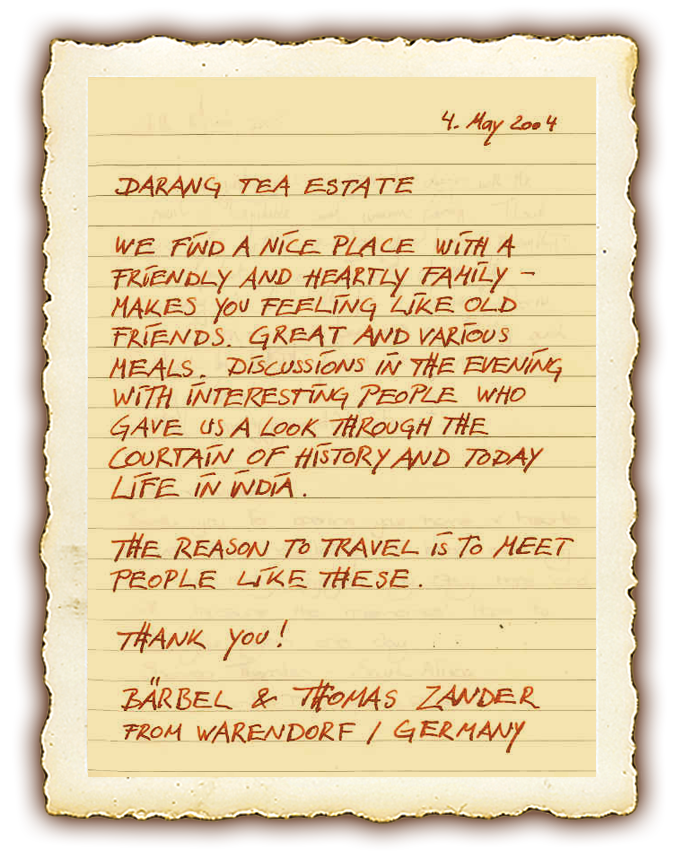 4. May 2004
DARANG TEA ESTATE
WE FIND A NICE PLACE WITH A
FRIENDLY AND HEARTLY FAMILY –
MAKES YOU FEELING LIKE OLD
FRIENDS. GREAT AND VARIOUS
MEALS. DISCUSSIONS IN THE EVENING
WITH INTERESTING PEOPLE WHO
GAVE US A LOOK THROUGH THE
COURTAIN OF HISTORY AND TODAY
LIFE IN INDIA.
THE REASON TO TRAVEL IS TO MEET
PEOPLE LIKE THESE.
THANK YOU!
BÄRBEL & THOMAS ZANDER
FROM WARENDORF / GERMANY